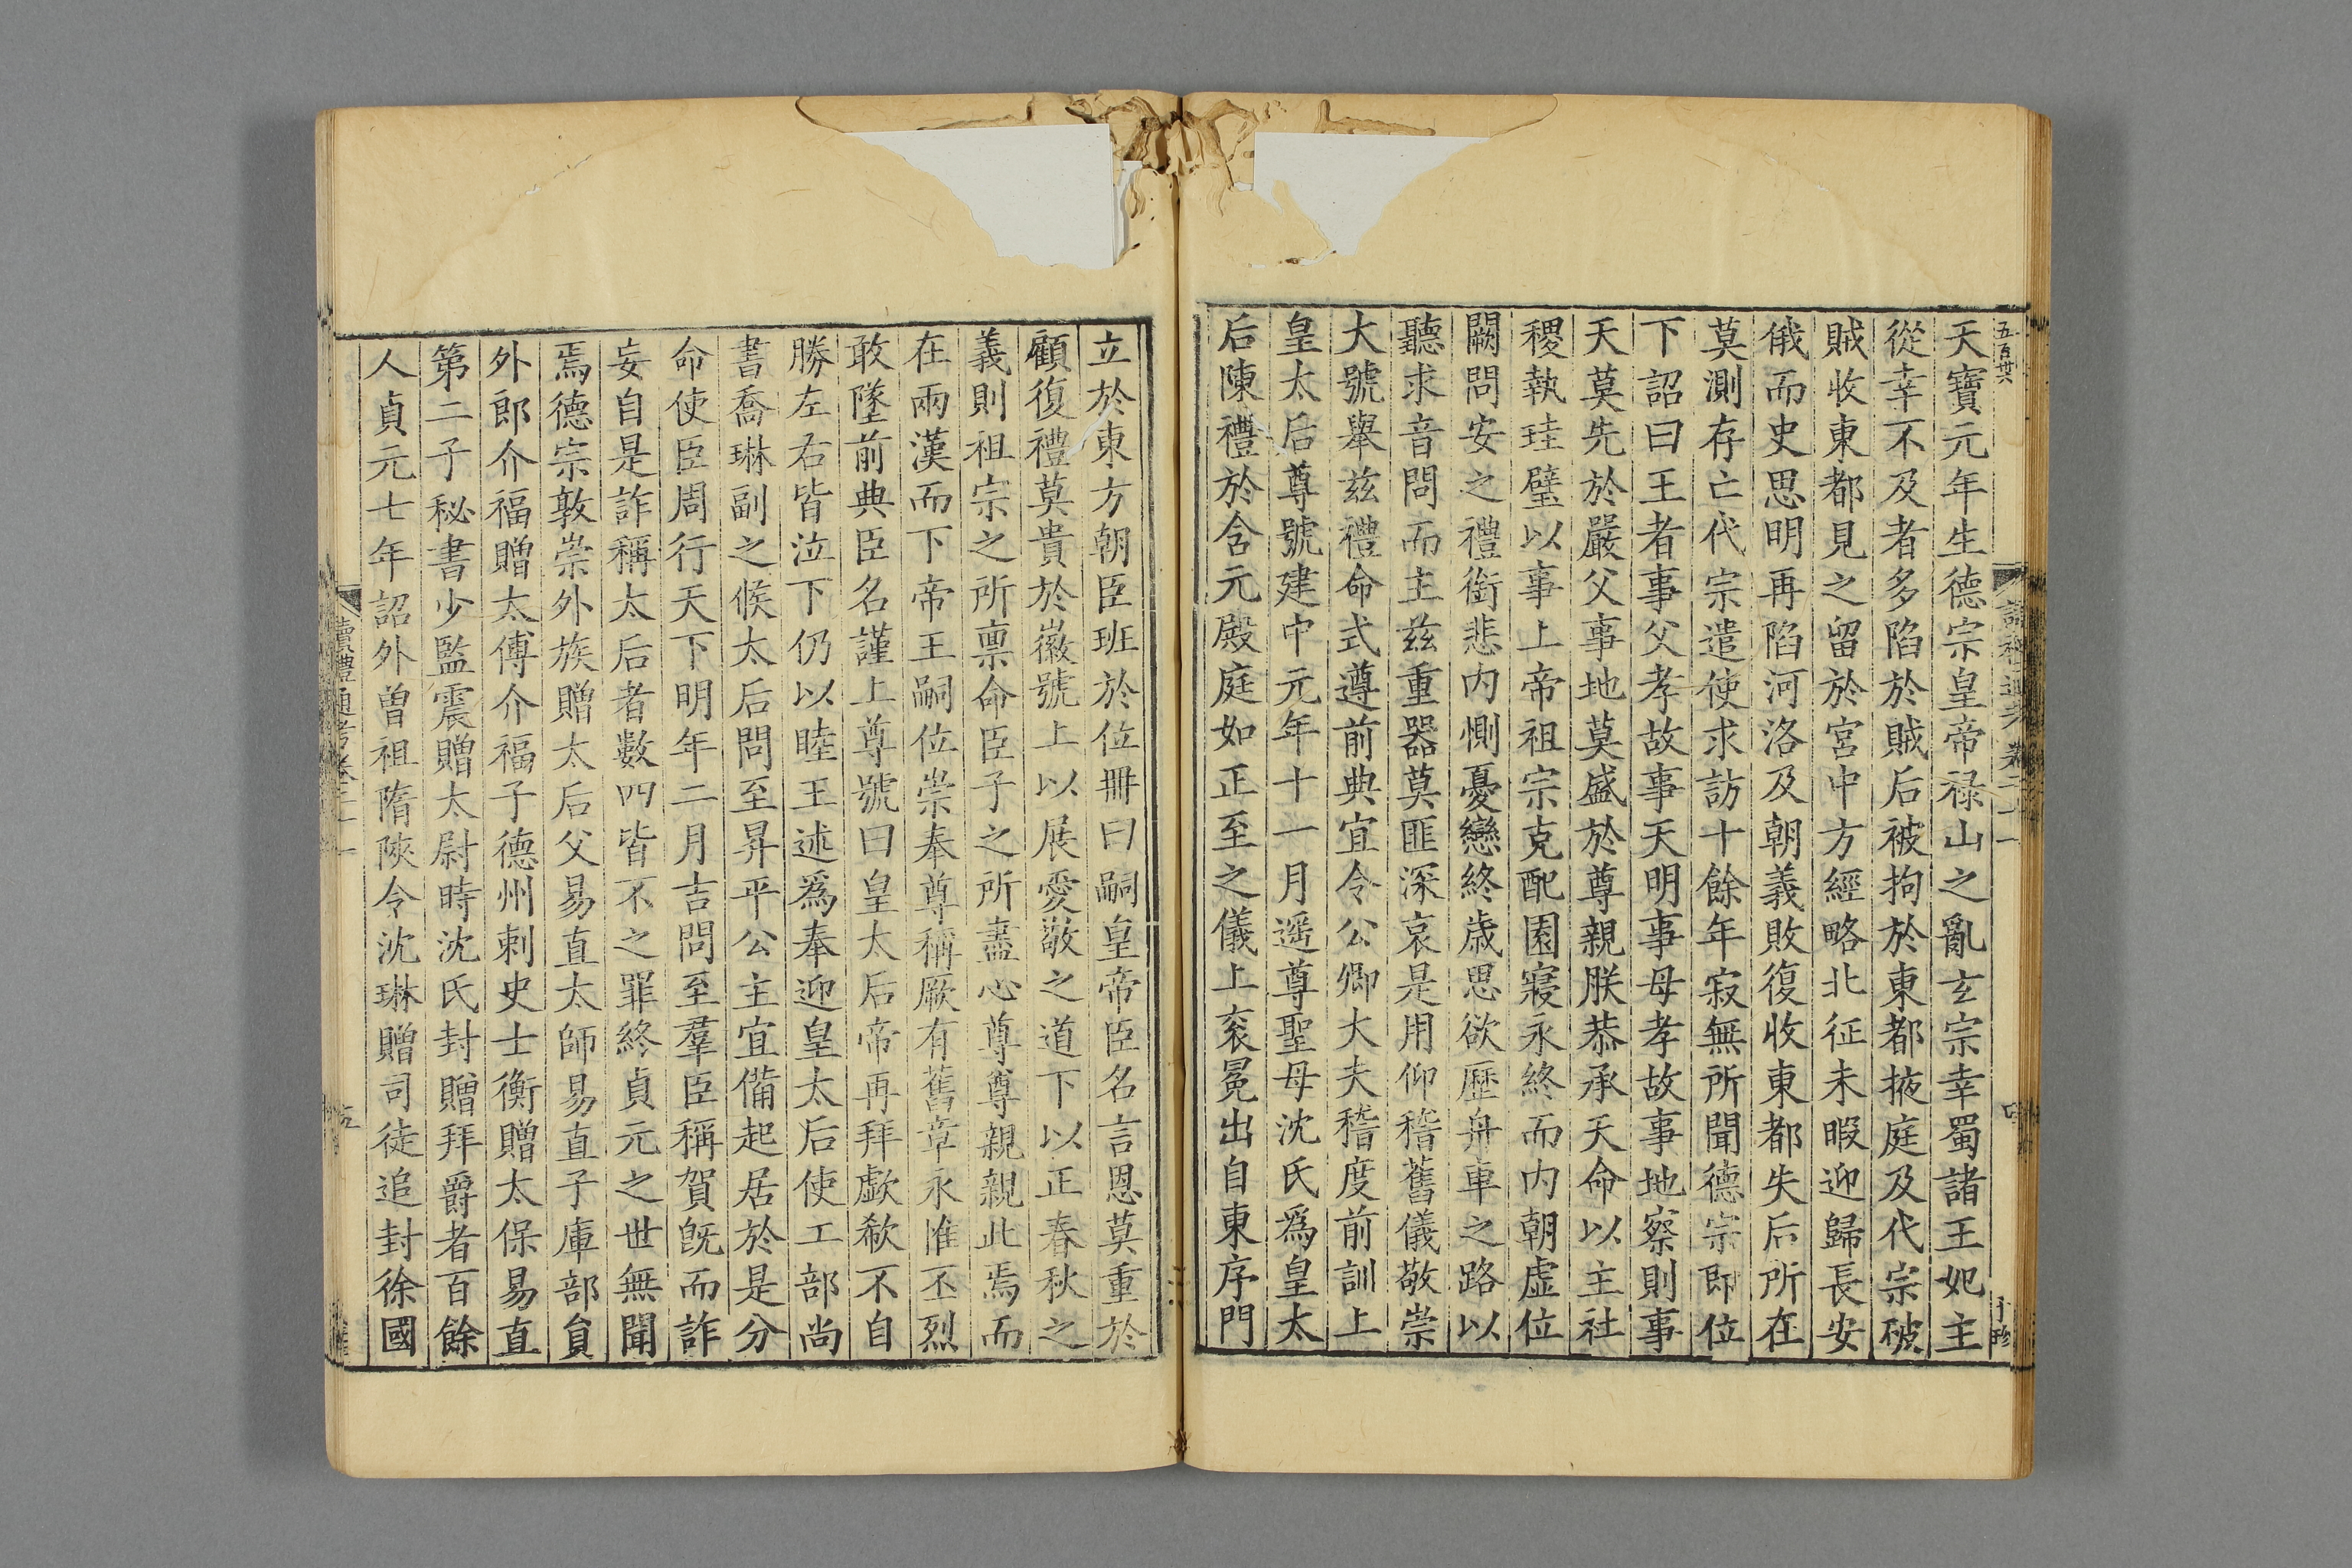 五百卅六
天寶元年生德宗皇帝祿山之亂玄宗幸蜀諸王妃主
從幸不及者多陷於賊后被拘於東都掖庭及代宗破
賊收東都見之留於宮中方經略北征未暇迎歸長安
俄而史思明再陷河洛及朝義敗復收東都失后所在
莫測存亡代宗遣使求訪十餘年寂無所聞德宗即位
下詔曰王者事父孝故事天明事母孝故事地察則事
天莫先於嚴父事地莫盛於尊親朕恭承天命以主社
稷執珪璧以事上帝祖宗克配園寢永終而內朝虛位
闕問安之禮銜悲內惻憂戀終歲思欲歷舟車之路以
聽求音問而主茲重器莫匪深哀是用仰稽舊儀敬崇
大號舉茲禮命式遵前典宜令公卿大夫稽度前訓上
皇太后尊號建中元年十一月遥尊聖母沈氏爲皇太
后陳禮於含元殿庭如正至之儀上袞冕出自東序門
立於東方朝臣班於位冊曰嗣皇帝臣名言恩莫重於
顧復禮莫貴於徽號上以展愛敬之道下以正春秋之
義則祖宗之所稟命臣子之所盡心尊尊親親此焉而
在兩漢而下帝王嗣位崇奉尊稱厥有舊章永惟丕烈
敢墜前典臣名謹上尊號曰皇太后帝再拜歔欷不自
勝左右皆泣下仍以睦王述爲奉迎皇太后使工部尚
書喬琳副之候太后問至昇平公主宜備起居於是分
命使臣周行天下明年二月吉問至羣臣稱賀既而詐
妄自是詐稱太后者數四皆不之罪終貞元之世無聞
焉德宗敦崇外族贈太后父易直太師易直子庫部員
外郎介福贈太傅介福子德州刺史士衡贈太保易直
第二子秘書少監震贈太尉時沈氏封贈拜爵者百餘
人貞元七年詔外曾祖隋陝令沈琳贈司徒追封徐國
讀禮通考卷二十一
五